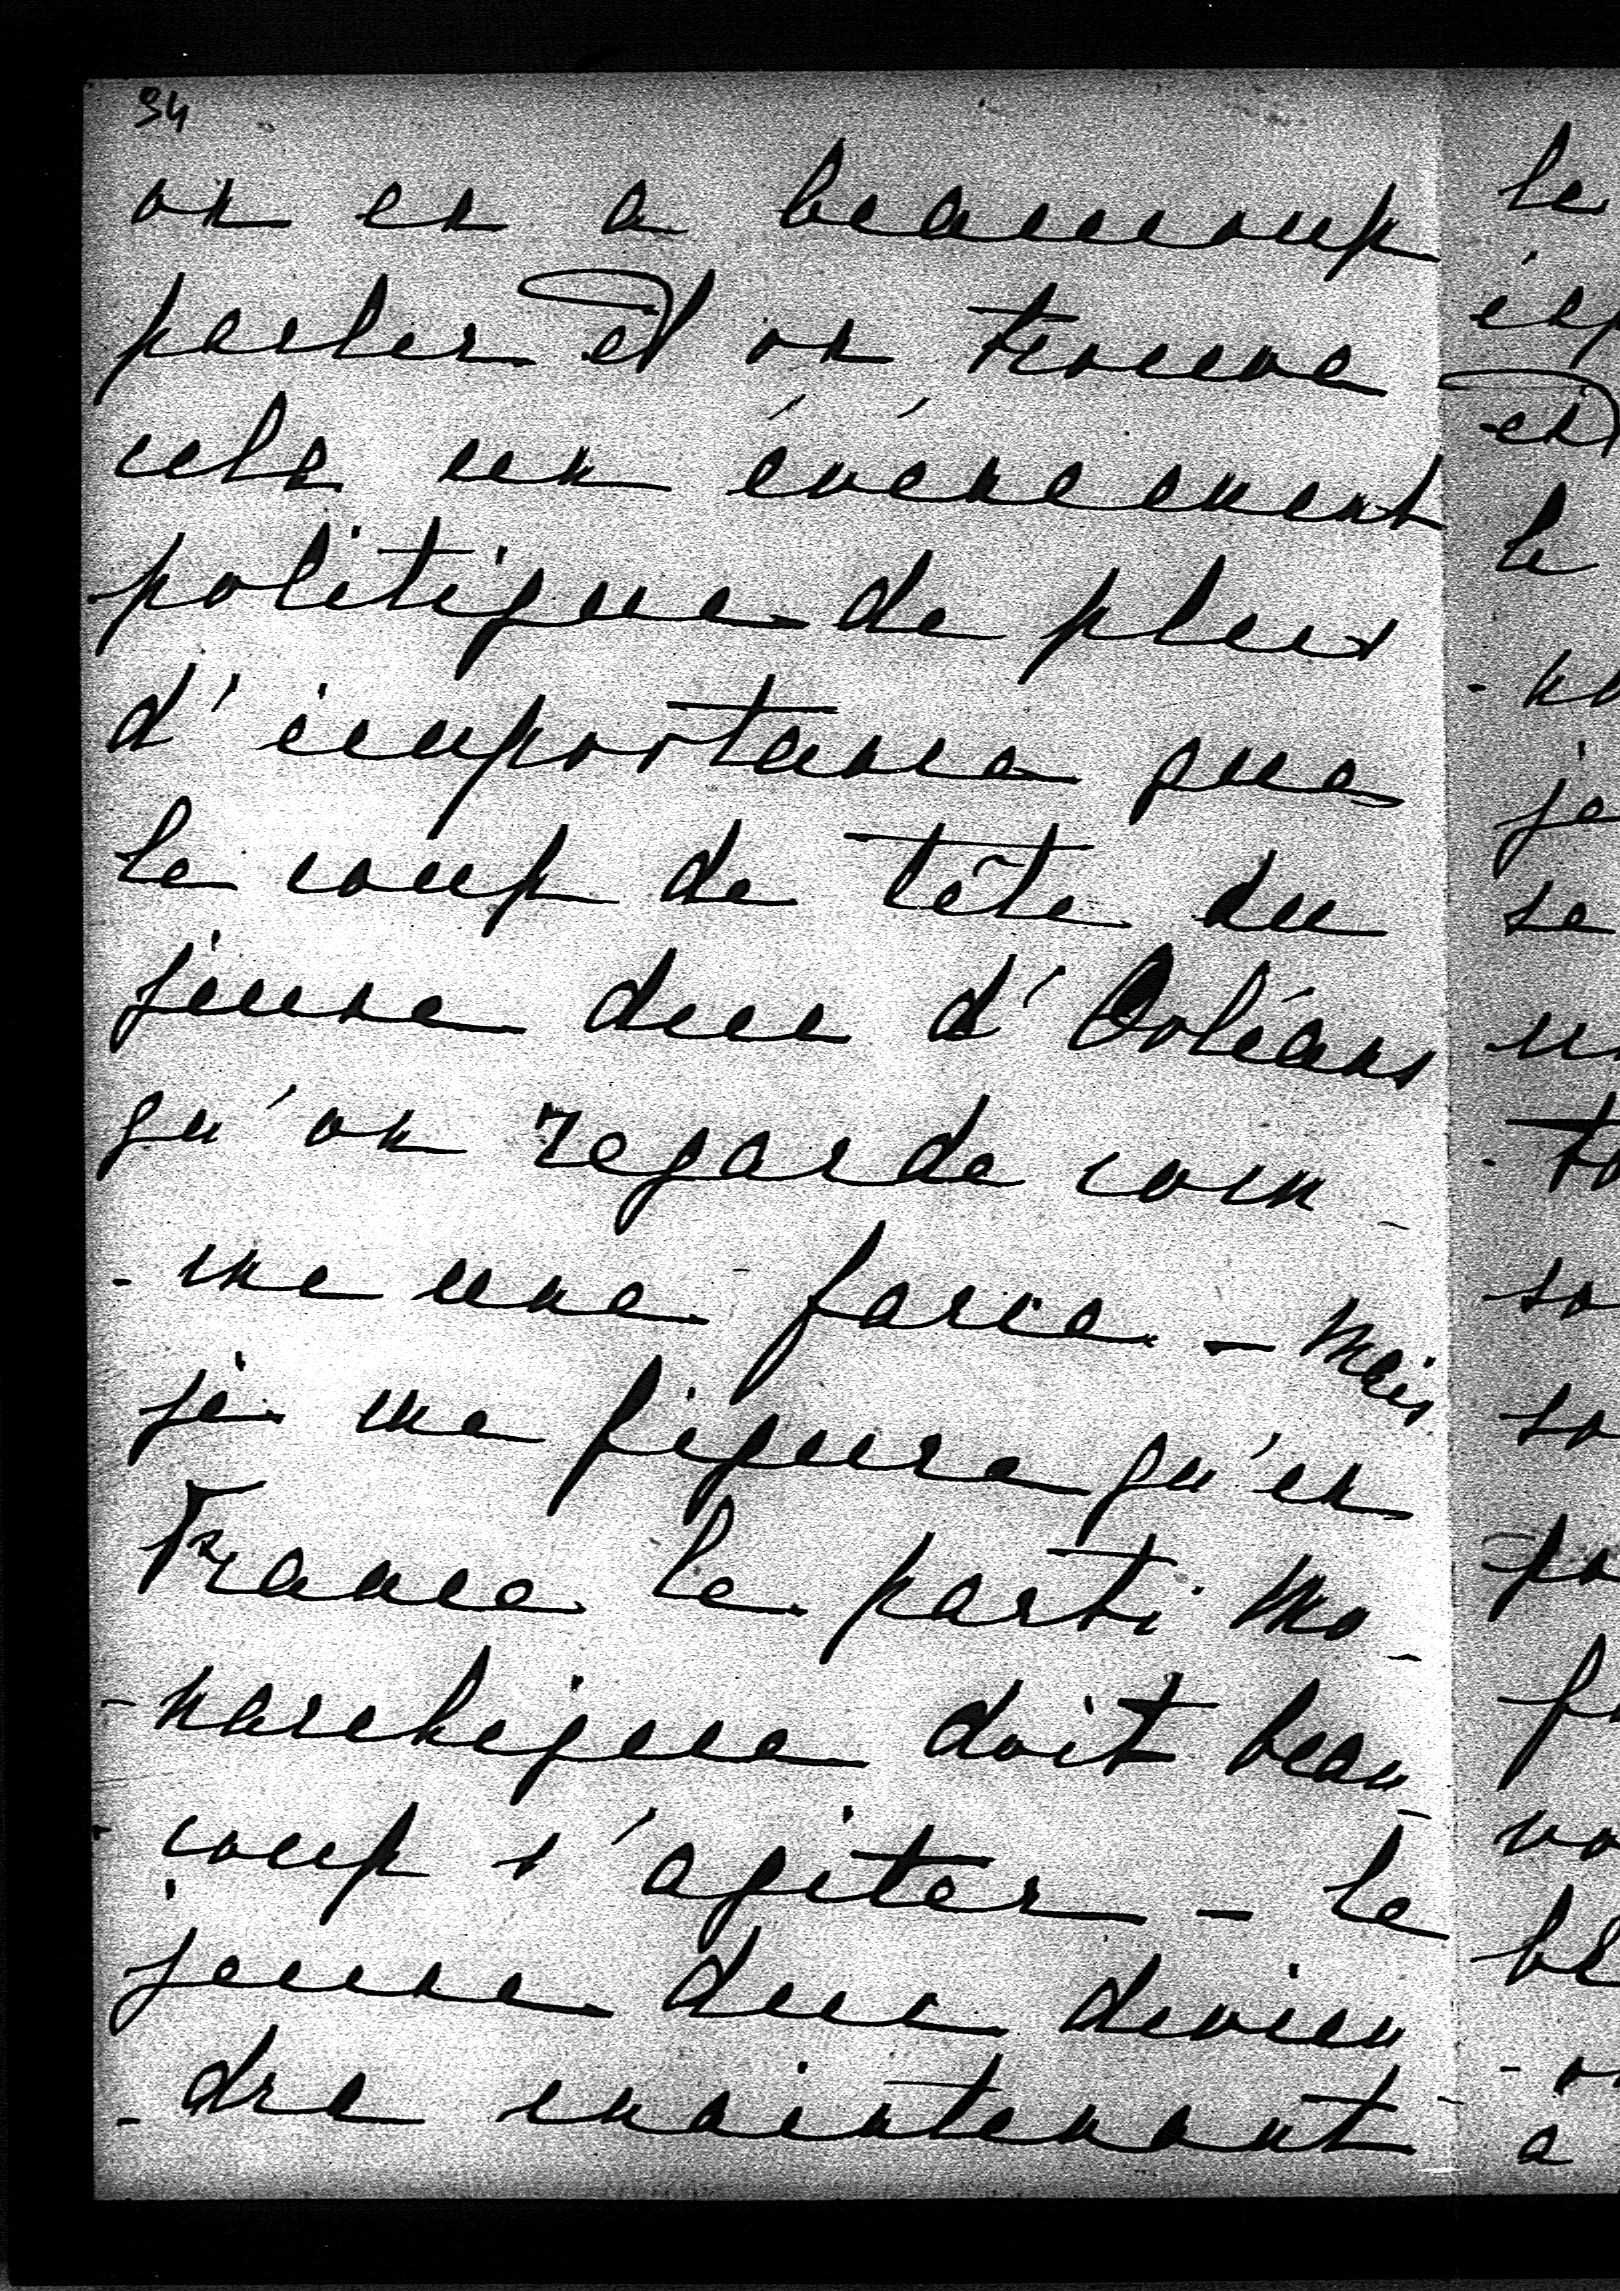 34
on en a beaucoup
parler et on trouve
cela un événement
politique de plus
d'importance que
le coup de tête du
jeune duc d'Orléans
qu'on regarde com-
-me une farce - Mais
je me figure qu'en
France le parti mo-
-narchique doit beau-
-coup s'agiter - le
jeune duc devien-
-dra maintenant
le
et
le
je
se
so
so
a